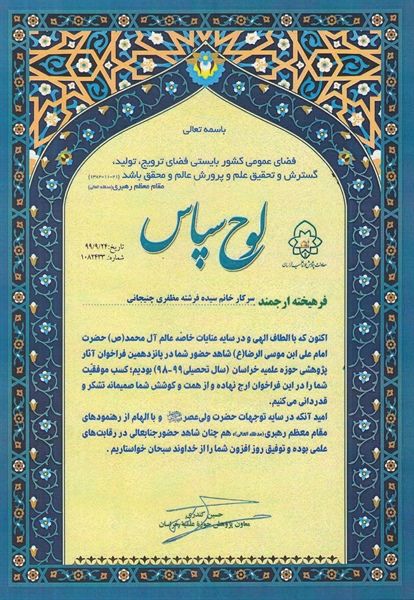 باسمه تعالی
فضای عمومی کشور بایستی فضای ترویج، تولید،
گسترش و تحقیق علم و پرورش عالم و محقق باشد
مقام معظم رهبری (مدظله العالی)
لوح سپاس
تاریخ: ۹۹/۹/۲۴
شماره: ۱۰۸۲۴۳۳
فرهیخته ارجمند سرکار خانم سیده فرشته مظفری چنیجانی
اکنون که با الطاف الهی و در سایه عنایات خاصّه عالم آل محمد(ص) حضرت
امام علی ابن موسی الرضا(ع) شاهد حضور شما در پانزدهمین فراخوان آثار
پژوهشی حوزه علمیه خراسان (سال تحصیلی ۹۹-۹۸) بودیم؛ کسب موفقیت
شما را در این فراخوان ارج نهاده و از همت و کوشش شما صمیمانه تشکر و
قدردانی می‌کنیم.
امید آنکه در سایه توجهات حضرت ولی‌عصر و با الهام از رهنمودهای
مقام معظم رهبری (مدظله العالی) هم چنان شاهد حضور جنابعالی در رقابت‌های
علمی بوده و توفیق روز افزون شما را از خداوند سبحان خواستاریم.
حسین کندری
معاون پژوهش حوزه علمیه خراسان